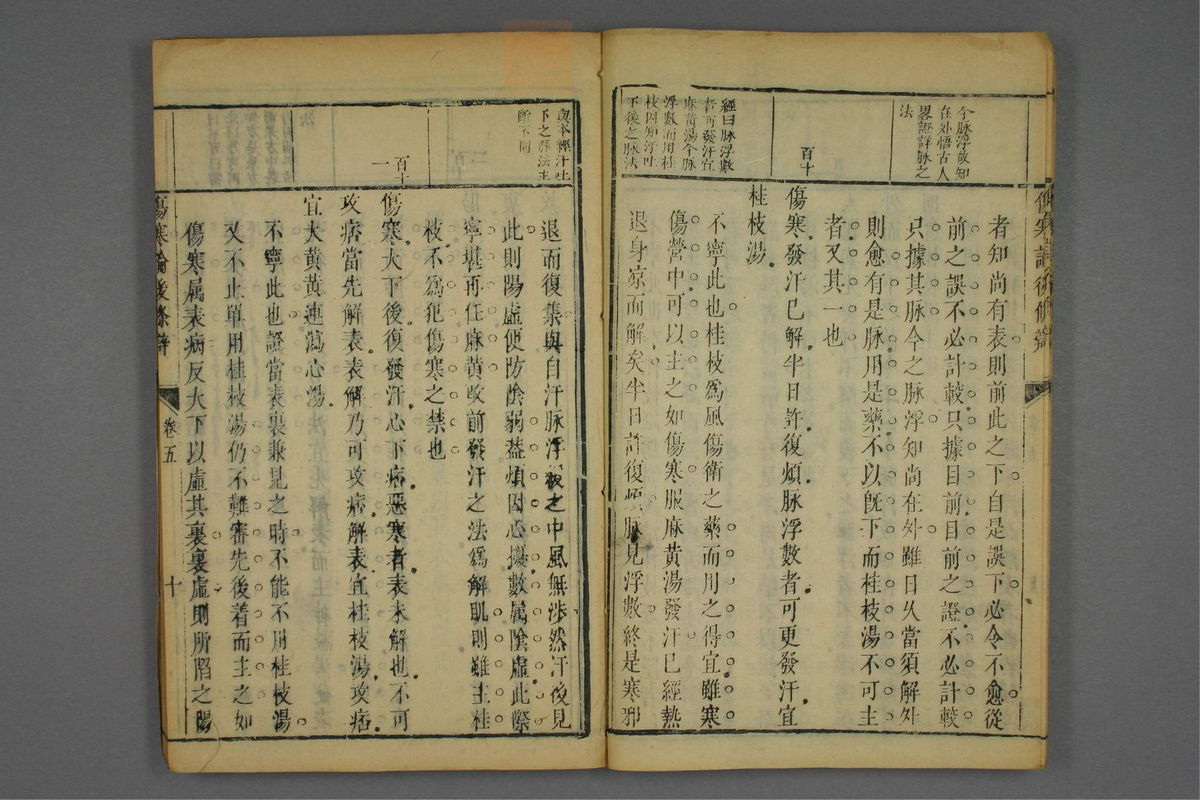 今脉浮故知
在外悟古人
畧證詳脉之
法
者知尚有表則前此之下自是誤下必令不愈從
前之誤不必計較只據目前目前之證不必計較
只據其脉今之脉浮知尚在外雖日久當須解外
則愈有是脉用是藥不以旣下而桂枝湯不可主
者又其一也
百十
傷寒發汗已解半日許復煩脉浮數者可更發汗宜
桂枝湯
經曰脉浮數
者可發汗宜
麻黄湯今脉
浮數而用桂
枝因知汗吐
下後之脉法
不寧此也桂枝爲風傷衛之藥而用之得宜雖寒
傷營中可以主之如傷寒服麻黄湯發汗已經熱
退身凉而解矣半日許復煩脉見浮數終是寒邪
與本經汗吐
下之脉法主
斷不同
退而復集與自汗脉浮緩之中風無涉然汗後見
此則陽虛便防陰弱蓋煩因心擾數属陰虛此際
寧堪再任麻黄改前發汗之法爲解肌則雖主桂
枝不爲犯傷寒之禁也
百十
一
傷寒大下後復發汗心下痞惡寒者表未解也不可
攻痞當先解表表解乃可攻痞解表宜桂枝湯攻痞
宜大黄黄連瀉心湯
不寧此也證當表裏兼見之時不能不用桂枝湯
又不止單用桂枝湯仍不難審先後着而主之如
傷寒属表病反大下以虛其裏裏虛則所陷之陽
傷寒論後條辯
卷五
十